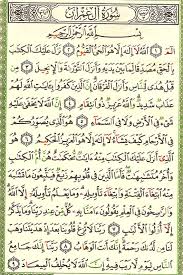 سُورَةُ آلِ عِمْرَانَ
بِسْمِ اللَّهِ الرَّحْمَٰنِ الرَّحِيمِ
الٓمٓ ١ ٱللَّهُ لَآ إِلَٰهَ إِلَّا هُوَ ٱلْحَىُّ ٱلْقَيُّومُ ٢ نَزَّلَ عَلَيْكَ ٱلْكِتَٰبَ
بِٱلْحَقِّ مُصَدِّقًا لِّمَا بَيْنَ يَدَيْهِ وَأَنزَلَ ٱلتَّوْرَىٰةَ وَٱلْإِنجِيلَ ٣ مِن
قَبْلُ هُدًى لِّلنَّاسِ وَأَنزَلَ ٱلْفُرْقَانَ إِنَّ ٱلَّذِينَ كَفَرُوا۟ بِـَٔايَٰتِ ٱللَّهِ لَهُمْ
عَذَابٌ شَدِيدٌ وَٱللَّهُ عَزِيزٌ ذُو ٱنتِقَامٍ ٤ إِنَّ ٱللَّهَ لَا يَخْفَىٰ عَلَيْهِ شَىْءٌ
فِى ٱلْأَرْضِ وَلَا فِى ٱلسَّمَآءِ ٥ هُوَ ٱلَّذِى يُصَوِّرُكُمْ
فِى ٱلْأَرْحَامِ كَيْفَ يَشَآءُ لَآ إِلَٰهَ إِلَّا هُوَ ٱلْعَزِيزُ ٱلْحَكِيمُ ٦ هُوَ ٱلَّذِىٓ
أَنزَلَ عَلَيْكَ ٱلْكِتَٰبَ مِنْهُ ءَايَٰتٌ مُّحْكَمَٰتٌ هُنَّ أُمُّ ٱلْكِتَٰبِ وَأُخَرُ
مُتَشَٰبِهَٰتٌ فَأَمَّا ٱلَّذِينَ فِى قُلُوبِهِمْ زَيْغٌ فَيَتَّبِعُونَ مَا تَشَٰبَهَ
مِنْهُ ٱبْتِغَآءَ ٱلْفِتْنَةِ وَٱبْتِغَآءَ تَأْوِيلِهِ وَمَا يَعْلَمُ تَأْوِيلَهُۥٓ إِلَّا ٱللَّهُ
وَٱلرَّٰسِخُونَ فِى ٱلْعِلْمِ يَقُولُونَ ءَامَنَّا بِهِۦ كُلٌّ مِّنْ عِندِ رَبِّنَا وَمَا يَذَّكَّرُ
إِلَّآ أُو۟لُوا۟ ٱلْأَلْبَٰبِ ٧ رَبَّنَا لَا تُزِغْ قُلُوبَنَا بَعْدَ إِذْ هَدَيْتَنَا وَهَبْ لَنَا
مِن لَّدُنكَ رَحْمَةً إِنَّكَ أَنتَ ٱلْوَهَّابُ ٨ رَبَّنَآ إِنَّكَ جَامِعُ
ٱلنَّاسِ لِيَوْمٍ لَّا رَيْبَ فِيهِ إِنَّ ٱللَّهَ لَا يُخْلِفُ ٱلْمِيعَادَ ٩